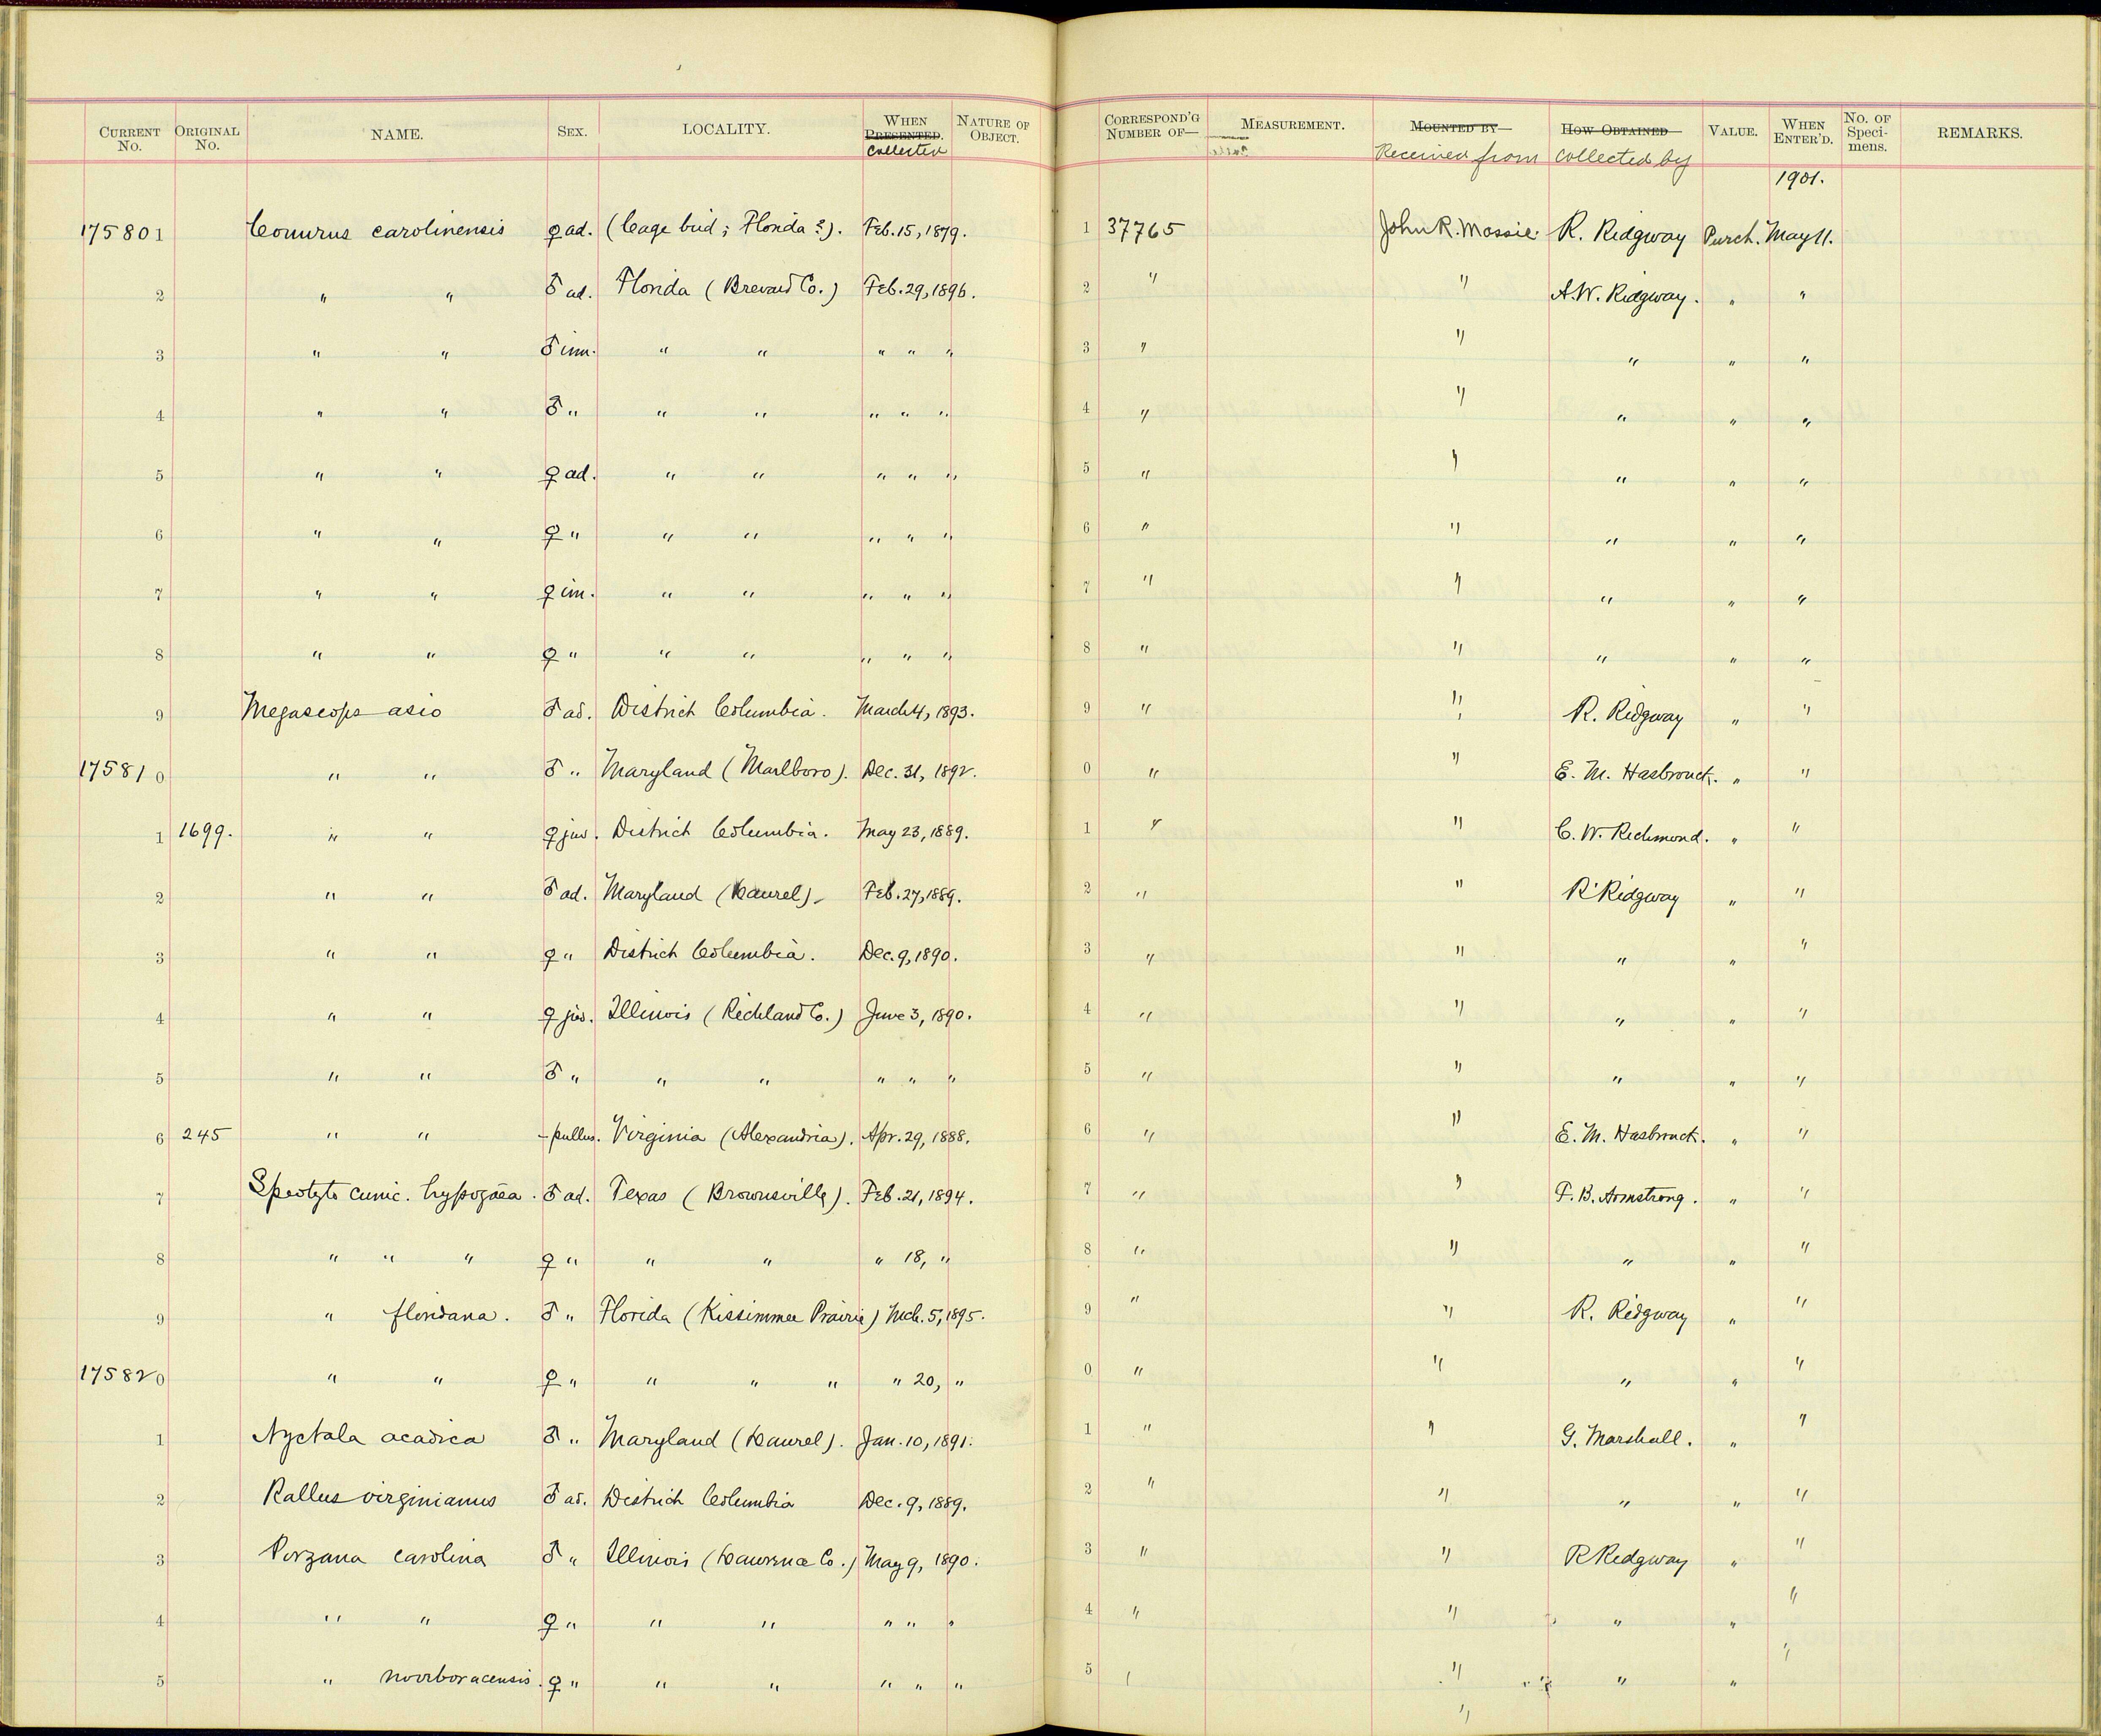 CURRENT No. ORIGINAL No. NAME. SEX. LOCALITY. WHEN PRESENTED. Collected NATURE OF OBJECT. CORRESPOND'G NUMBER OF— MEASUREMENT. MOUNTED BY— Received from HOW OBTAINED Collected by VALUE. WHEN ENTER'D. No. OF Speci-mens. REMARKS.
1901.
175801 Conurus carolinensis ♀ ad. (Cage bird; Florida?). Feb. 15, 1879. 1 37765 John R. Massie. R. Ridgway Purch. May 11.
2 " " ♂ ad. Florida (Brevard Co.) Feb. 29, 1896. 2 " " A.W. Ridgway. " "
3 " " ♂ im. " " " " " 3 " " " " "
4 " " ♂ " " " " " " 4 " " " " "
5 " " ♀ ad. " " " " " 5 " " " " "
6 " " ♀ " " " " " " 6 " " " " "
7 " " ♀ im. " " " " " 7 " " " " "
8 " " ♀ " " " " " " 8 " " " " "
9 Megascops asio ♂ ad. District Columbia. March 4, 1893. 9 " " R. Ridgway " "
175810 " " ♂ " Maryland (Marlboro). Dec. 31, 1892. 0 " " E. M. Hasbrouck. " "
1 1699. " " ♀ juv. District Columbia. May 23, 1889. 1 " " C. W. Richmond. " "
2 " " ♂ ad. Maryland (Laurel). Feb. 27, 1889. 2 " " R Ridgway " "
3 " " ♀ " District Columbia. Dec. 9, 1890. 3 " " " " "
4 " " ♀ juv. Illinois (Richland Co.) June 3, 1890. 4 " " " " "
5 " " ♂ " " " " " " 5 " " " " "
6 245 " " – pullus. Virginia (Alexandria). Apr. 29, 1888. 6 " " E. M. Hasbrouck. " "
7 Speotyto cunic. hypogæa. ♂ ad. Texas (Brownsville). Feb. 21, 1894. 7 " " F. B. Armstrong. " "
8 " " " ♀ " " " " 18, " 8 " " " " "
9 " floridana. ♂ " Florida (Kissimmee Prairie) Mch. 5, 1895. 9 " " R. Ridgway " "
175820 " " ♀ " " " " " 20, " 0 " " " " "
1 Nyctala acadica ♂ " Maryland (Laurel). Jan. 10, 1891. 1 " " G. Marshall. " "
2 Rallus virginianus ♂ ad. District Columbia Dec. 9, 1889. 2 " " " " "
3 Porzana carolina ♂ " Illinois (Lawrence Co.) May 9, 1890. 3 " " R Ridgway " "
4 " " ♀ " " " " " " 4 " " " " "
5 " noveboracensis. ♀ " " " " " " 5 " " " " "